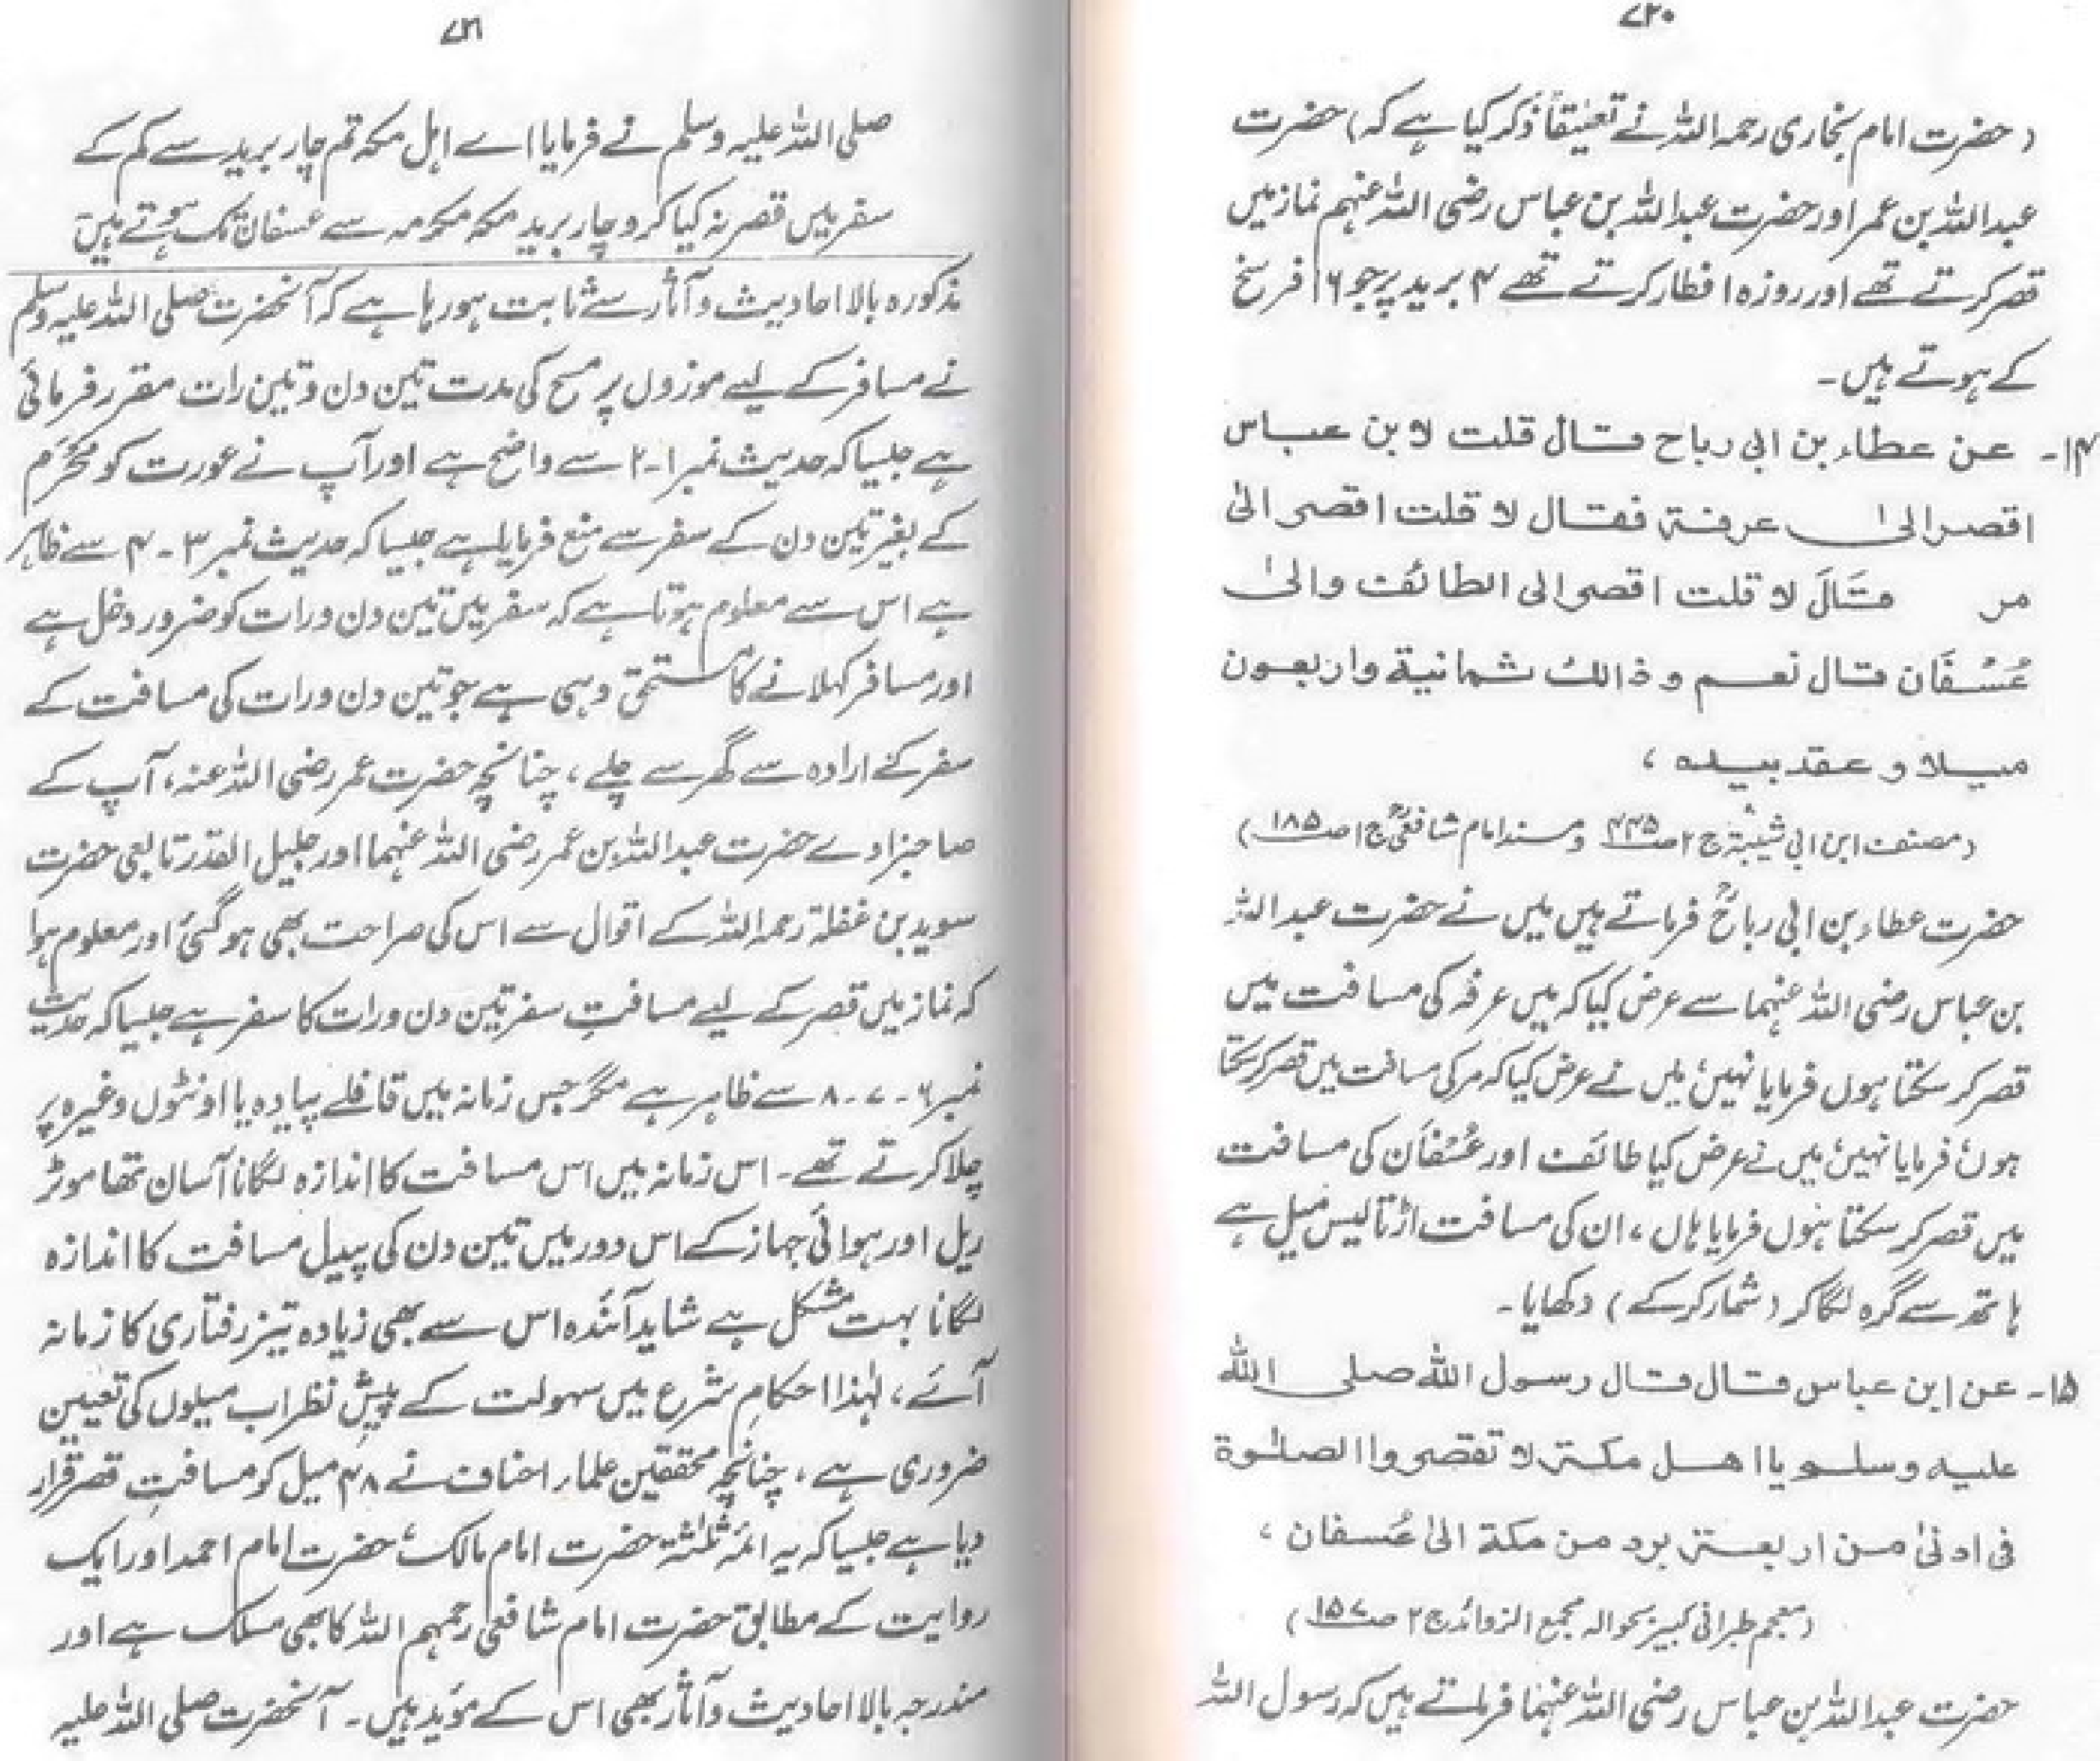 ۷۲۰
(حضرت امام بخاری رحمہ اللہ نے تعلیقاً ذکر کیا ہے کہ) حضرت
عبداللہ بن عمر اور حضرت عبداللہ بن عباس رضی اللہ عنہم نماز میں
قصر کرتے تھے اور روزہ افطار کرتے تھے ۴ برید پر جو ۱۶ فرسخ
کے ہوتے ہیں۔
۱۴۔ عن عطاء بن ابی رباح قال قلت لا بن عباس
اقصر الیٰ عرفة فقال لا قلت اقصر الیٰ
مر قَالَ لا قلت اقصر الی الطائف والیٰ
عُسْفَان قال نعم و ذالك ثمانية واربعون
ميلا و عقد بيده ،
(مصنف ابن ابی شیبۃ ج ۲ ص۴۴۵ و مسند امام شافعیؒ ج ۱ ص۱۸۵)
حضرت عطاء بن ابی رباحؒ فرماتے ہیں میں نے حضرت عبداللہ
بن عباس رضی اللہ عنہما سے عرض کیا کہ میں عرفہ کی مسافت میں
قصر کر سکتا ہوں فرمایا نہیں، میں نے عرض کیا کہ مر کی مسافت میں قصر کر سکتا
ہوں، فرمایا نہیں، میں نے عرض کیا طائف اور عُسْفَان کی مسافت
میں قصر کر سکتا ہوں فرمایا ہاں، ان کی مسافت اڑتالیس میل ہے
ہاتھ سے گرہ لگا کر (شمار کر کے) دکھایا۔
۱۵۔ عن ابن عباس قال قال رسول الله صلى الله
عليه وسلم يا اهل مكة لا تقصروا الصلوٰة
فی ادنیٰ من اربعة برد من مكة الیٰ عُسفان ،
(معجم طبرانی کبیر بحوالہ مجمع الزوائد ج ۲ ص۱۵۷)
حضرت عبداللہ بن عباس رضی اللہ عنہما فرماتے ہیں کہ رسول اللہ
۷۲۱
صلی اللہ علیہ وسلم نے فرمایا اے اہل مکہ تم چار برید سے کم کے
سفر میں قصر نہ کیا کرو چار برید مکہ مکرمہ سے عسفان تک ہوتے ہیں
مذکورہ بالا احادیث و آثار سے ثابت ہو رہا ہے کہ آنحضرت صلی اللہ علیہ وسلم
نے مسافر کے لیے موزوں پر مسح کی مدت تین دن و تین رات مقرر فرمائی
ہے جیسا کہ حدیث نمبر ۱-۲ سے واضح ہے اور آپ نے عورت کو محرَم
کے بغیر تین دن کے سفر سے منع فرمایا ہے جیسا کہ حدیث نمبر ۳-۴ سے ظاہر
ہے اس سے معلوم ہوتا ہے کہ سفر میں تین دن و رات کو ضرور دخل ہے
اور مسافر کہلانے کا مستحق وہی ہے جو تین دن و رات کی مسافت کے
سفر کے ارادہ سے گھر سے چلے، چنانچہ حضرت عمر رضی اللہ عنہ، آپ کے
صاحبزادے حضرت عبداللہ بن عمر رضی اللہ عنہما اور جلیل القدر تابعی حضرت
سوید بن غفلۃ رحمہ اللہ کے اقوال سے اس کی صراحت بھی ہو گئی اور معلوم ہوا
کہ نماز میں قصر کے لیے مسافتِ سفر تین دن و رات کا سفر ہے جیسا کہ حدیث
نمبر ۶-۷-۸ سے ظاہر ہے مگر جس زمانہ میں قافلے پیادہ یا اونٹوں وغیرہ پر
چلا کرتے تھے۔ اس زمانہ میں اس مسافت کا اندازہ لگانا آسان تھا موٹر
ریل اور ہوائی جہاز کے اس دور میں تین دن کی پیدل مسافت کا اندازہ
لگانا بہت مشکل ہے شاید آئندہ اس سے بھی زیادہ تیز رفتاری کا زمانہ
آئے، لہٰذا احکامِ شرع میں سہولت کے پیشِ نظر اب میلوں کی تعیین
ضروری ہے، چنانچہ محققین علماء احناف نے ۴۸ میل کو مسافتِ قصر قرار
دیا ہے جیسا کہ یہ ائمہ ثلٰثۃ حضرت امام مالک، حضرت امام احمد اور ایک
روایت کے مطابق حضرت امام شافعی رحمہم اللہ کا بھی مسلک ہے اور
مندرجہ بالا احادیث و آثار بھی اس کے مؤید ہیں۔ آنحضرت صلی اللہ علیہ